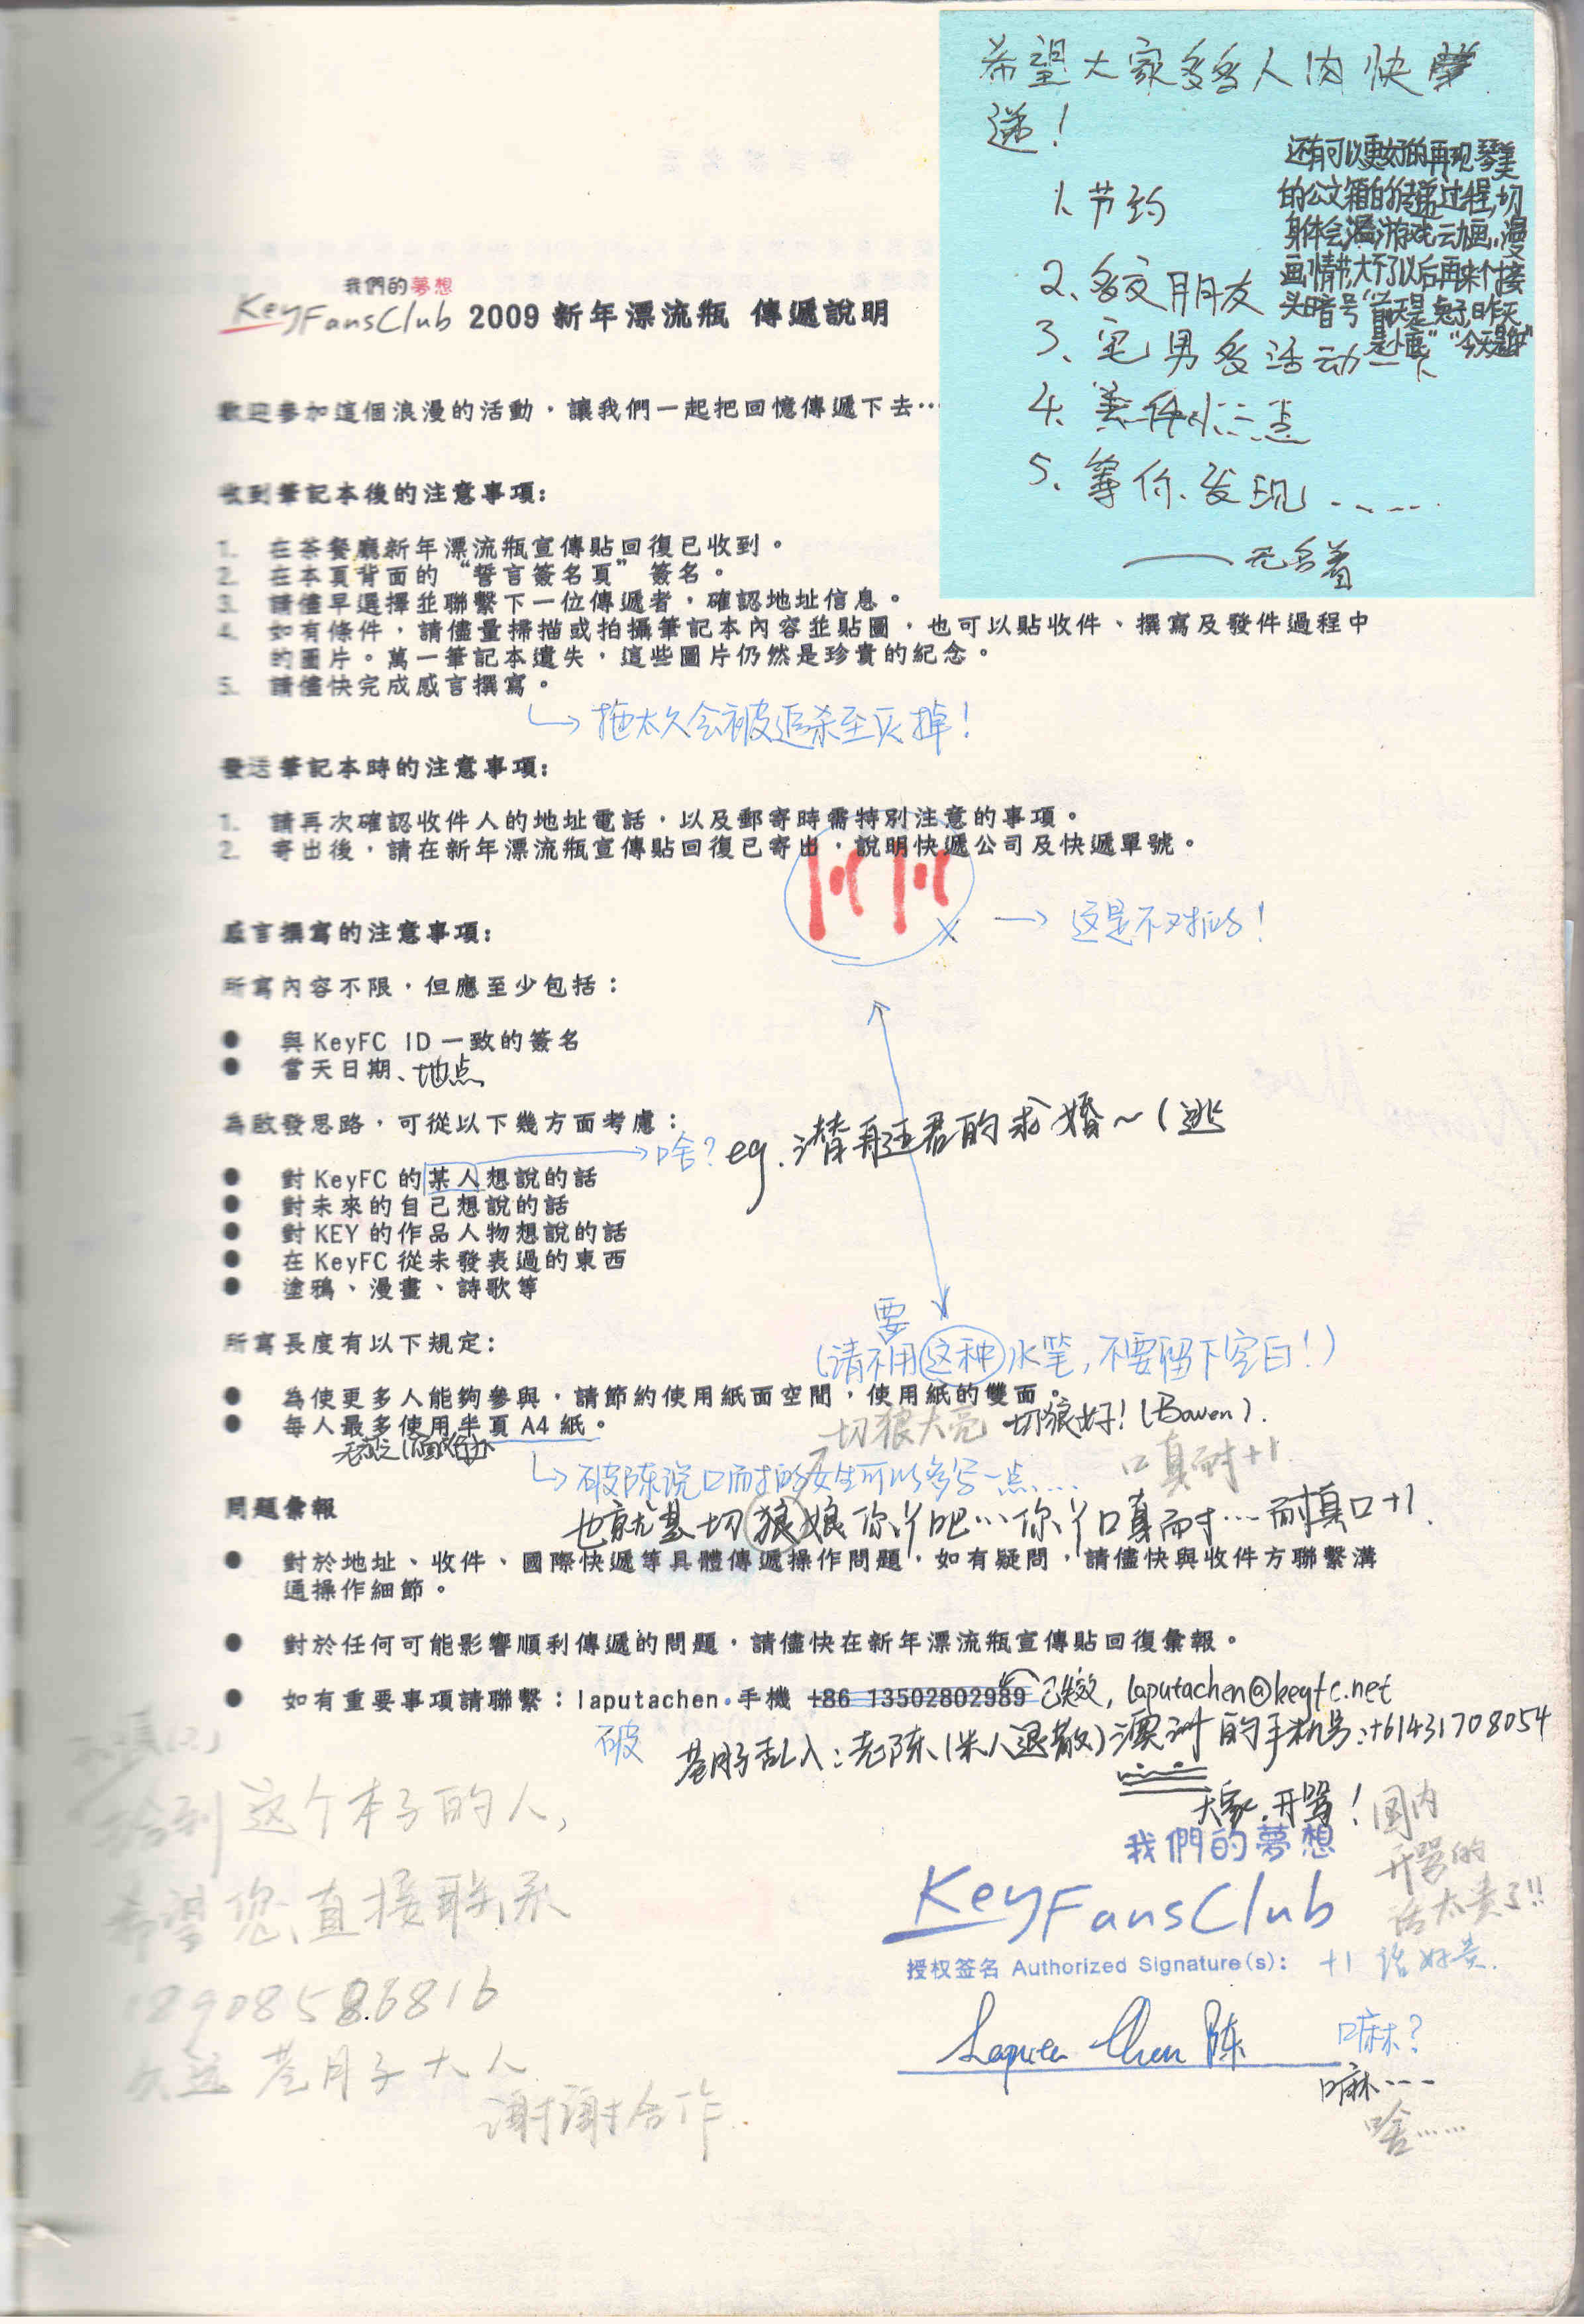 希望大家多多人肉快
递！
1、节约
2、多交朋友
3、宅男多活动一下
4、
5、等你发现……
——无名着
还有可以更好的再现琴美
的公文箱的传递过程,切
身体会游戏、动画、漫
画情节,大不了以后再来个接
头暗号“前天是兔子,昨天
是小鹿”“今天是你”
我們的夢想
KeyFansClub 2009 新年漂流瓶 傳遞說明
歡迎參加這個浪漫的活動，讓我們一起把回憶傳遞下去…
收到筆記本後的注意事項:
1. 在茶餐廳新年漂流瓶宣傳貼回復已收到。
2. 在本頁背面的“誓言簽名頁”簽名。
3. 請儘早選擇並聯繫下一位傳遞者，確認地址信息。
4. 如有條件，請儘量掃描或拍攝筆記本內容並貼圖，也可以貼收件、撰寫及發件過程中
的圖片。萬一筆記本遺失，這些圖片仍然是珍貴的紀念。
5. 請儘快完成感言撰寫。
拖太久会被追杀至灭掉！
發送筆記本時的注意事項:
1. 請再次確認收件人的地址電話，以及郵寄時需特別注意的事項。
2. 寄出後，請在新年漂流瓶宣傳貼回復已寄出，說明快遞公司及快遞單號。
这是不对的！
感言撰寫的注意事項:
所寫內容不限，但應至少包括：
● 與 KeyFC ID 一致的簽名
● 當天日期、地点
為啟發思路，可從以下幾方面考慮：
啥？ eg. 潜再连君的求婚～(逃
● 對 KeyFC 的某人想說的話
● 對未來的自己想說的話
● 對 KEY 的作品人物想說的話
● 在 KeyFC 從未發表過的東西
● 塗鴉、漫畫、詩歌等
要
(请不用这种水笔,不要留下空白！)
所寫長度有以下規定:
● 為使更多人能夠參與，請節約使用紙面空間，使用紙的雙面。
● 每人最多使用半頁 A4 紙。
切狼大亮 切狼好！(Bowen).
破陈说口而寸的女生可以多写一点……
口真而寸+1
也就是切狼娘你丫吧…你丫口真而寸…而寸真口+1
問題彙報
● 對於地址、收件、國際快遞等具體傳遞操作問題，如有疑問，請儘快與收件方聯繫溝
通操作細節。
● 對於任何可能影響順利傳遞的問題，請儘快在新年漂流瓶宣傳貼回復彙報。
● 如有重要事項請聯繫：laputachen 手機 +86 13502802989 已失效, laputachen@keyfc.net
破
苍月子乱入：老陈(米人退散)澳洲的手机号:+61431708054
大家开骂！
国内
开骂的
话太贵了!!
拾到这个本子的人,
希望您直接联系
18908586816
苍月子大人
谢谢合作
我們的夢想
KeyFansClub
授权签名 Authorized Signature(s):
+1 话好贵.
Laputa Chen 陈
嘛？
嘛…
啥……